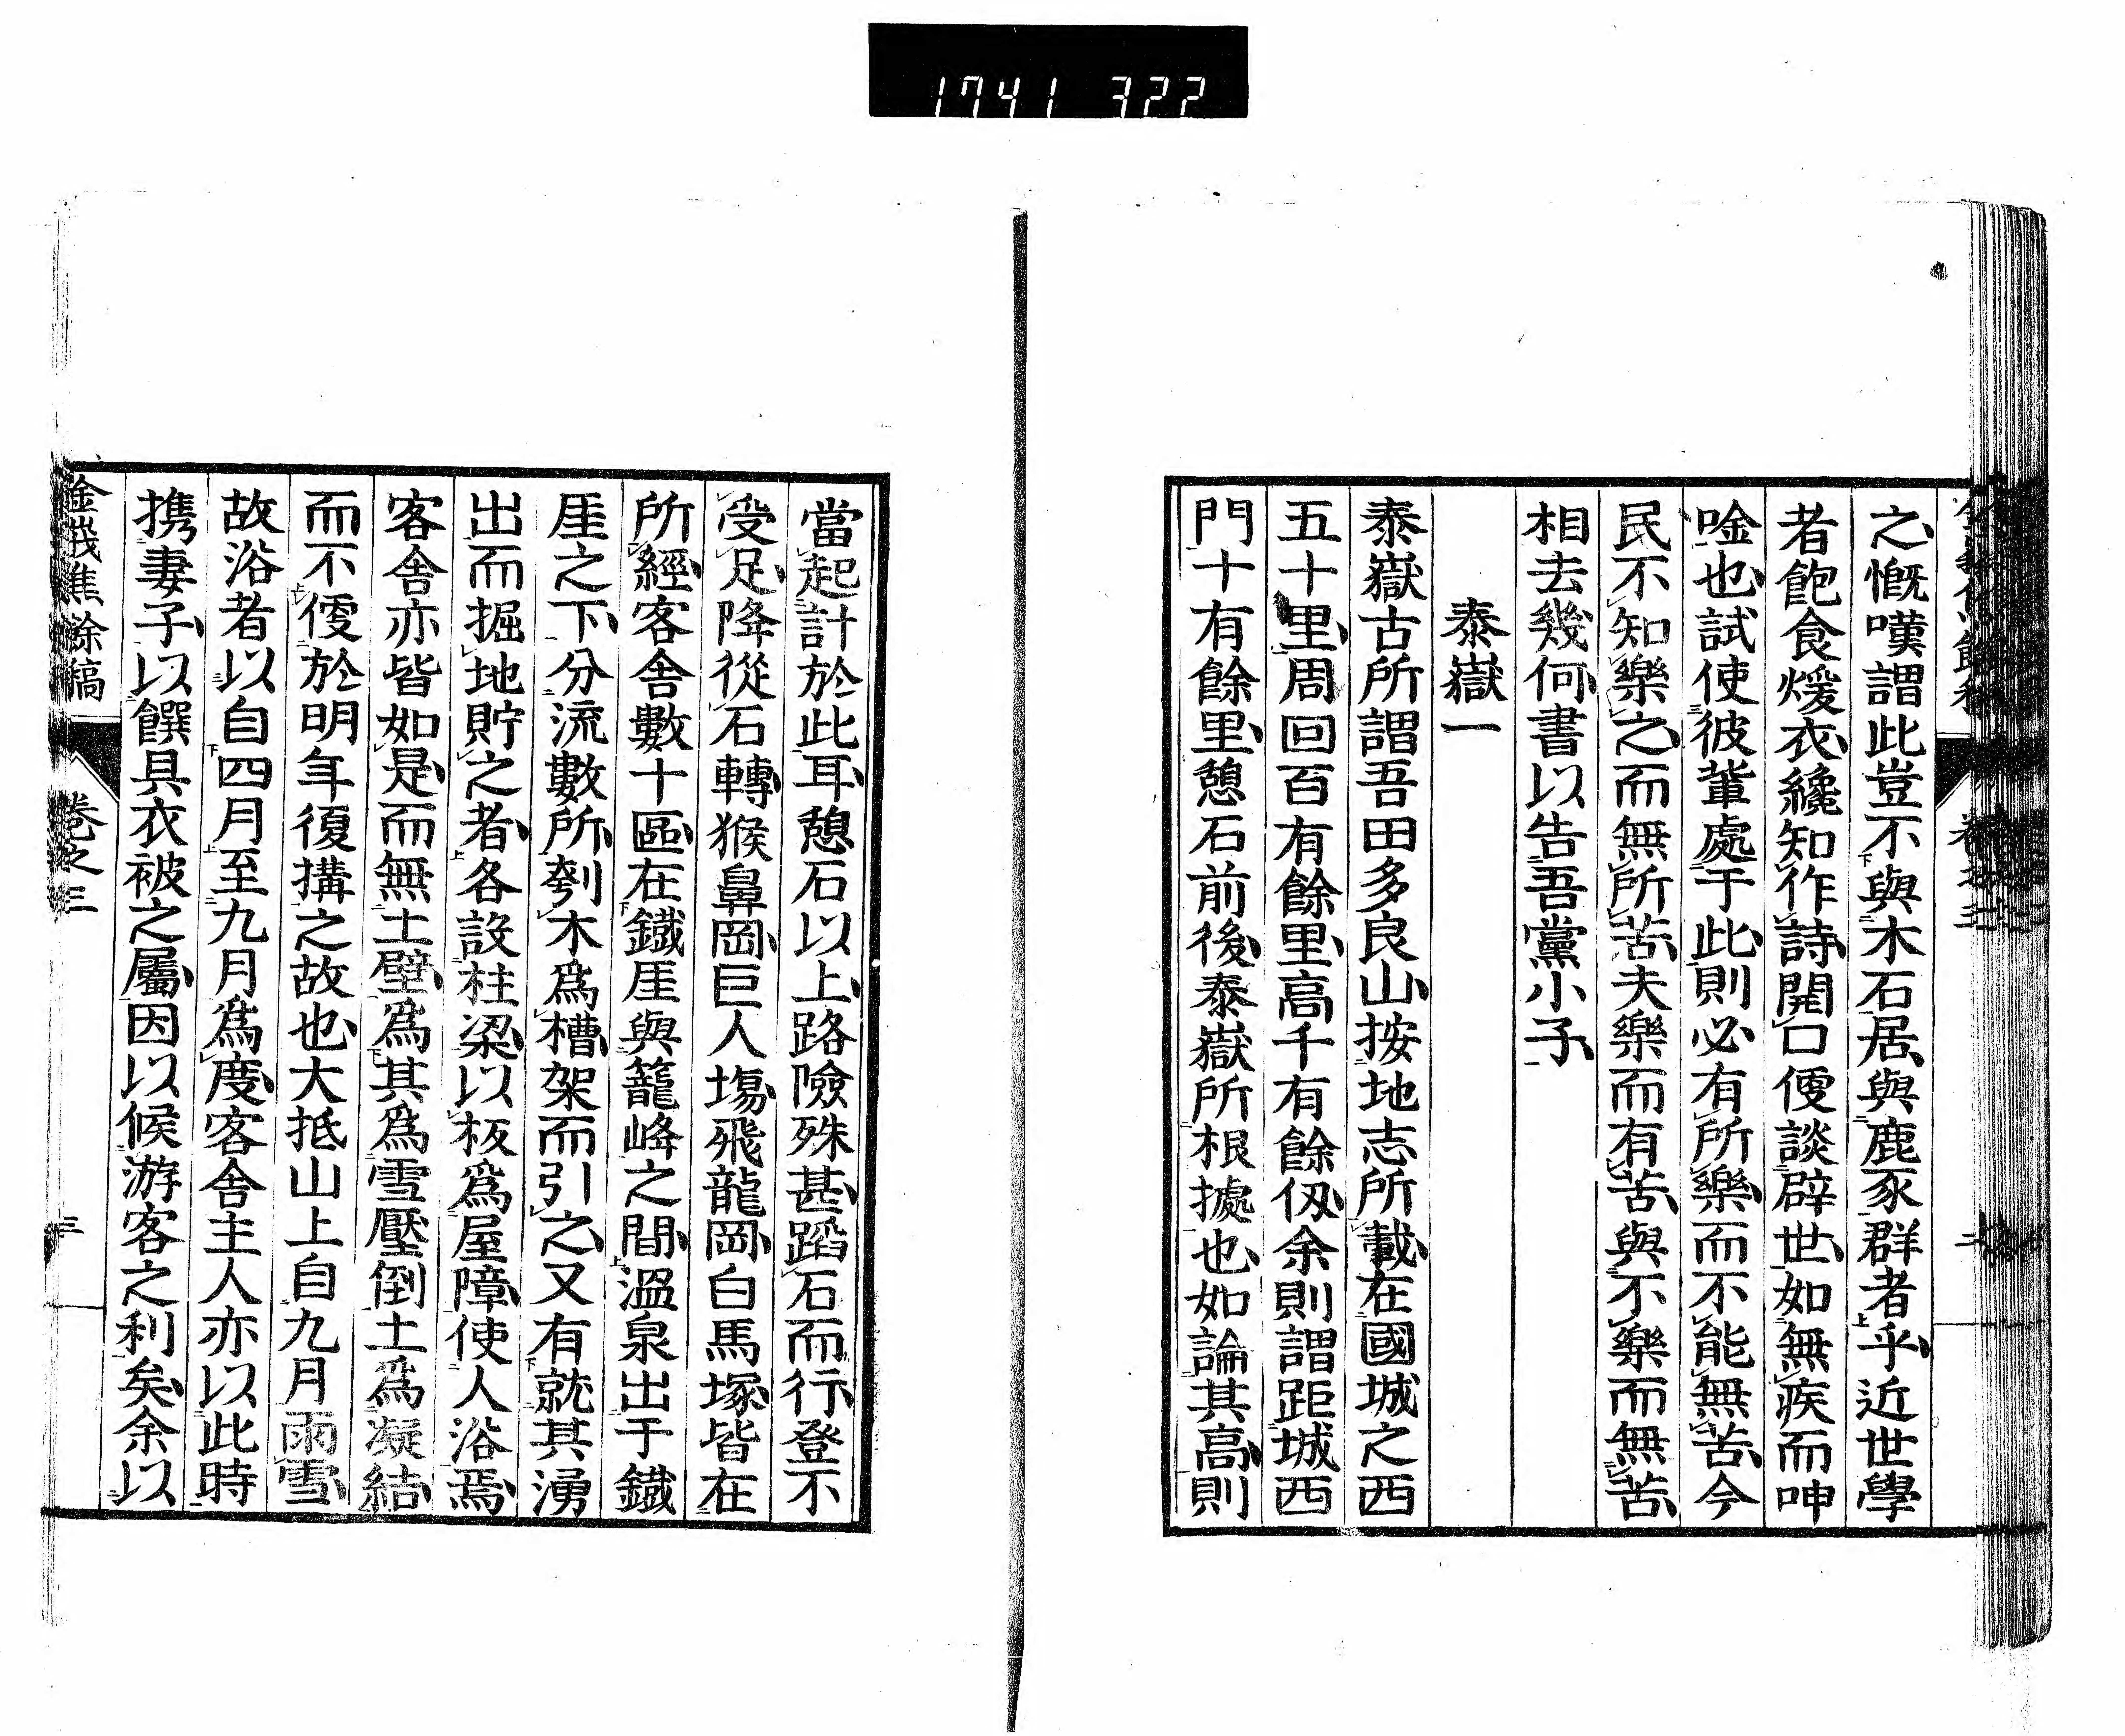 1741 322
之慨嘆謂此豈不與木石居與鹿豕群者乎近世學
者飽食煖衣纔知作詩開口便談辟世如無疾而呻
唫也試使彼輩處于此則必有所樂而不能無苦今
民不知樂之而無所苦夫樂而有苦與不樂而無苦
相去幾何書以告吾黨小子
泰嶽一
泰嶽古所謂吾田多良山按地志所載在國城之西
五十里周回百有餘里高千有餘仭余則謂距城西
門十有餘里憩石前後泰嶽所根據也如論其高則
當起計於此耳憩石以上路險殊甚蹈石而行登不
受足降從石轉猴鼻岡巨人塲飛龍岡白馬塚皆在
所經客舎數十區在鐡厓與籠峰之間溫泉出于鐡
厓之下分流數所刳木爲槽架而引之又有就其湧
出而掘地貯之者各設柱梁以板爲屋障使人浴焉
客舎亦皆如是而無土壁爲其爲雪壓倒土爲凝結
而不便於明年復搆之故也大抵山上自九月雨雪
故浴者以自四月至九月爲度客舎主人亦以此時
携妻子以饌具衣被之屬因以候游客之利矣余以
金峩焦餘稿
卷之三
三